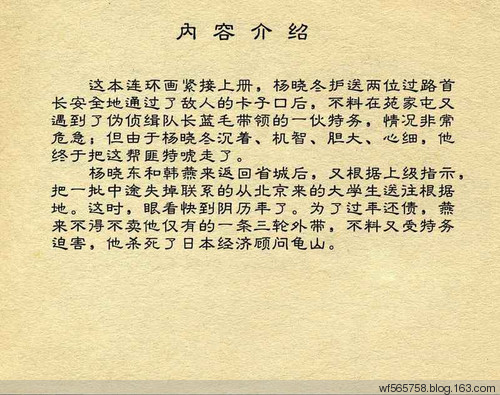 内容介绍
这本连环画紧接上册，杨晓冬护送两位过路首
长安全地通过了敌人的卡子口后，不料在苑家屯又
遇到了伪侦缉队长蓝毛带领的一伙特务，情况非常
危急；但由于杨晓冬沉着、机智、胆大、心细，他
终于把这帮匪特唬走了。
杨晓冬和韩燕来返回省城后，又根据上级指示，
把一批中途失掉联系的从北京来的大学生送注根据
地。这时，眼看快到阴历年了。为了过年还债，燕
来不得不卖他仅有的一条三轮外带，不料又受特务
迫害，他杀死了日本经济顾问龟山。
wf565758.blog.163.com